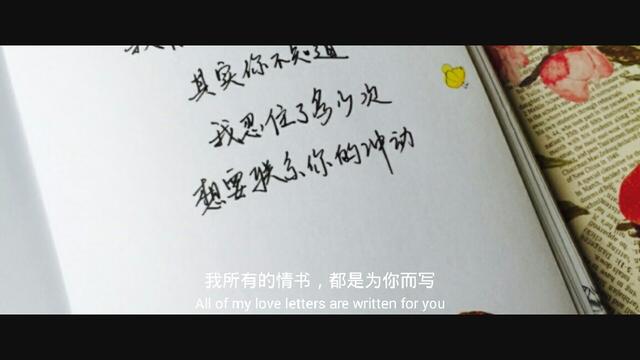 其实你不知道
我忍住了多少次
想要联系你的冲动
我所有的情书，都是为你而写
All of my love letters are written for you